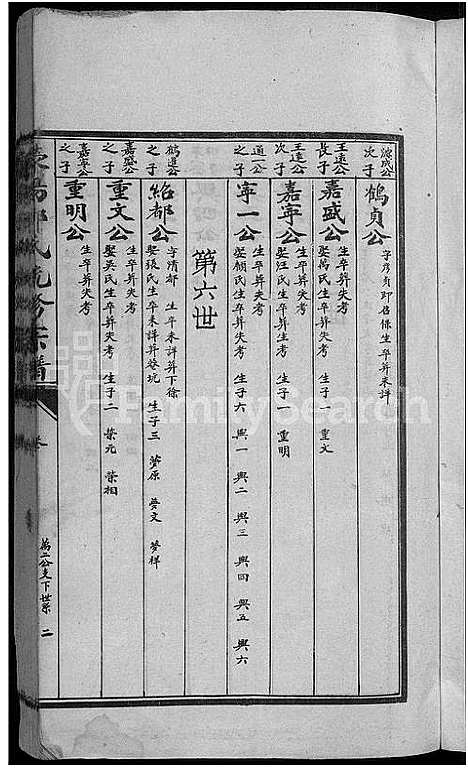 次子
鶴貞公
字彥貞即召保生卒葬未詳
王遠公
長子
嘉盛公
生卒葬失考
娶萬氏生卒葬失考 生子一 重文
王遠公
次子
嘉寧公
生卒葬失考
娶汪氏生卒葬失考 生子一 重明
通一公
之子
寧一公
生卒葬失考
娶顧氏生卒葬失考 生子六 興一 興二 興三 興四 興五 興六
第六世
鶴道公
之子
紹都公
字清都 生卒未詳葬下徐
娶張氏生卒未詳葬 坑 生子三 夢原 夢文 夢祥
嘉盛公
之子
重文公
生卒葬失考
娶吳氏生卒葬失考 生子二 榮元 榮相
嘉寧公
之子
重明公
生卒葬失考
氏統修宗譜
卷
萬二公支下世系 二
FamilySearch